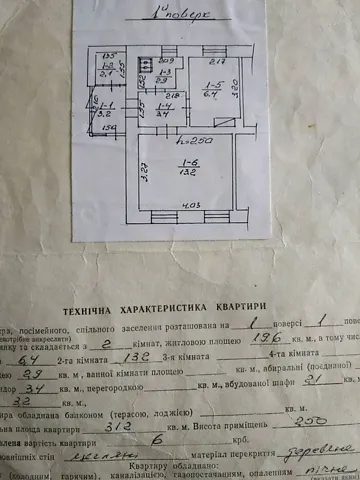 1й поверх
1.35
1-2
2.1
1.55
2.09
1-3
2.9
1.32
2.17
1-5
6.4
3.20
1-1
3.2
1.50
2.18
1-4
3.4
1.55
h=2.50
3.27
1-6
13.2
4.03
ТЕХНІЧНА ХАРАКТЕРИСТИКА КВАРТИРИ
посімейного, спільного заселення розташована на 1 поверсі 1
складається з 2 кімнат, житловою площею 19.6 кв. м, в тому
6.4 2-га кімната 13.2 3-я кімната 4-та кімната
2.9 кв. м, ванної кімнати площею кв. м, вбиральні
3.4 кв. м, перегородкою кв. м, вбудованої шафи 2.1 кв.
3.2 кв. м.,
обладнана балконом (терасою, лоджією) кв. м.
площа квартири 31.2 кв. м. Висота приміщень 2.50
вартість квартири 6 крб.
стін матеріал перекриття деревяне
Квартиру обладнано:
(холодним, гарячим), каналізацією, газопостачанням, опаленням пічне